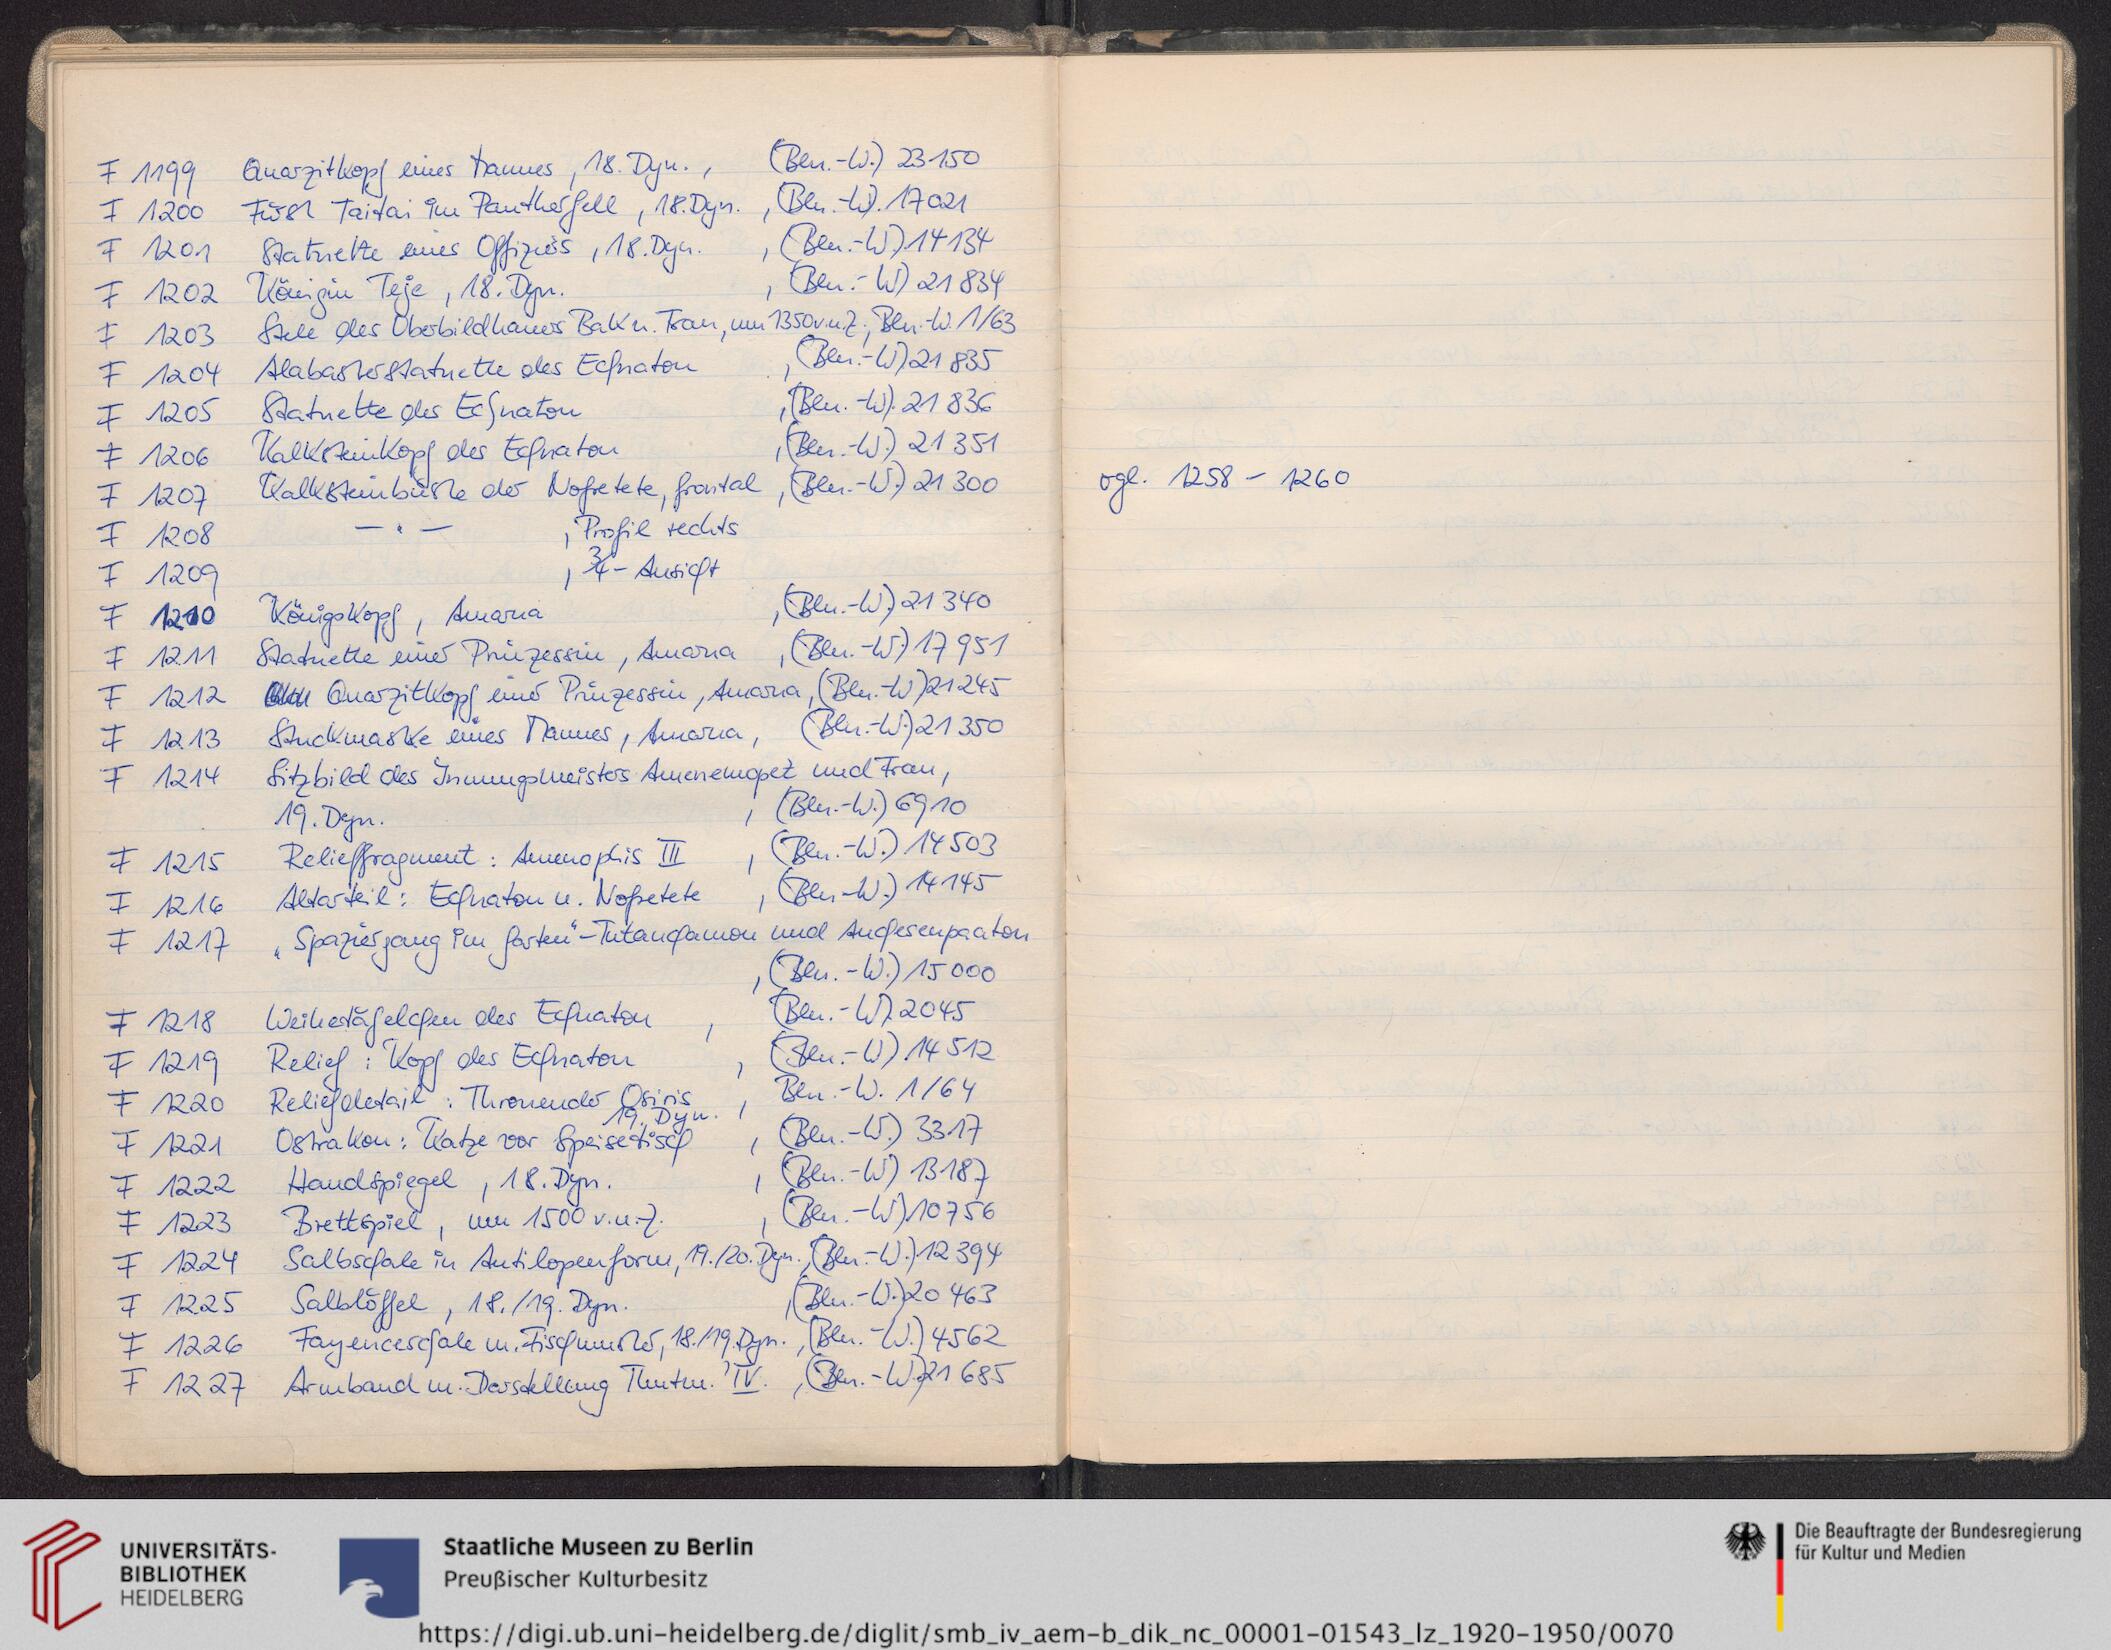 F 1199 Quarzitkopf eines Mannes, 18. Dyn., (Bln.-W.) 23150
F 1200 Fürst Taitai im Pantherfell, 18. Dyn., (Bln.-W). 17021
F 1201 Statuette eines Offiziers, 18. Dyn., (Bln.-W.) 14134
F 1202 Königin Teje, 18. Dyn., (Bln.-W) 21834
F 1203 Stele des Oberbildhauers Bak u. Frau, um 1350 v.u.Z., Bln.-W. 1/63
F 1204 Alabasterstatuette des Echnaton, (Bln.-W) 21835
F 1205 Statuette des Echnaton, (Bln.-W). 21836
F 1206 Kalksteinkopf des Echnaton, (Bln.-W.) 21351
F 1207 Kalksteinbüste der Nofretete, frontal, (Bln.-W.) 21300
F 1208 — " —, Profil rechts
F 1209, 3/4-Ansicht
F 1210 Königskopf, Amarna, (Bln.-W.) 21340
F 1211 Statuette einer Prinzessin, Amarna, (Bln.-W.) 17951
F 1212 Quarzitkopf einer Prinzessin, Amarna, (Bln.-W.) 21245
F 1213 Stuckmaske eines Mannes, Amarna, (Bln.-W.) 21350
F 1214 Sitzbild des Innungsmeisters Amenemopet und Frau,
19. Dyn., (Bln.-W.) 6910
F 1215 Relieffragment: Amenophis III, (Bln.-W.) 14503
F 1216 Altarteil: Echnaton u. Nofretete, (Bln.-W.) 14145
F 1217 „Spaziergang im Garten"-Tutanchamon und Anchesenpaaton
, (Bln.-W.) 15000
F 1218 Weihetäfelchen des Echnaton, (Bln.-W). 2045
F 1219 Relief: Kopf des Echnaton, (Bln.-W.) 14512
F 1220 Reliefdetail: Thronender Osiris, Bln.-W. 1/64
19. Dyn.
F 1221 Ostrakon: Katze vor Speisetisch, (Bln.-W.) 3317
F 1222 Handspiegel, 18. Dyn., (Bln.-W) 13187
F 1223 Brettspiel, um 1500 v.u.Z., (Bln.-W) 10756
F 1224 Salbschale in Antilopenform, 19./20. Dyn., (Bln.-W.) 12394
F 1225 Salblöffel, 18./19. Dyn., (Bln.-W.) 20463
F 1226 Fayenceschale m. Fischmuster, 18./19. Dyn., (Bln.-W.) 4562
F 1227 Armband m. Darstellung Thutm. IV., (Bln.-W.) 21685
vgl. 1258 – 1260
UNIVERSITÄTS-
BIBLIOTHEK
HEIDELBERG
Staatliche Museen zu Berlin
Preußischer Kulturbesitz
Die Beauftragte der Bundesregierung
für Kultur und Medien
https://digi.ub.uni-heidelberg.de/diglit/smb_iv_aem-b_dik_nc_00001-01543_lz_1920-1950/0070